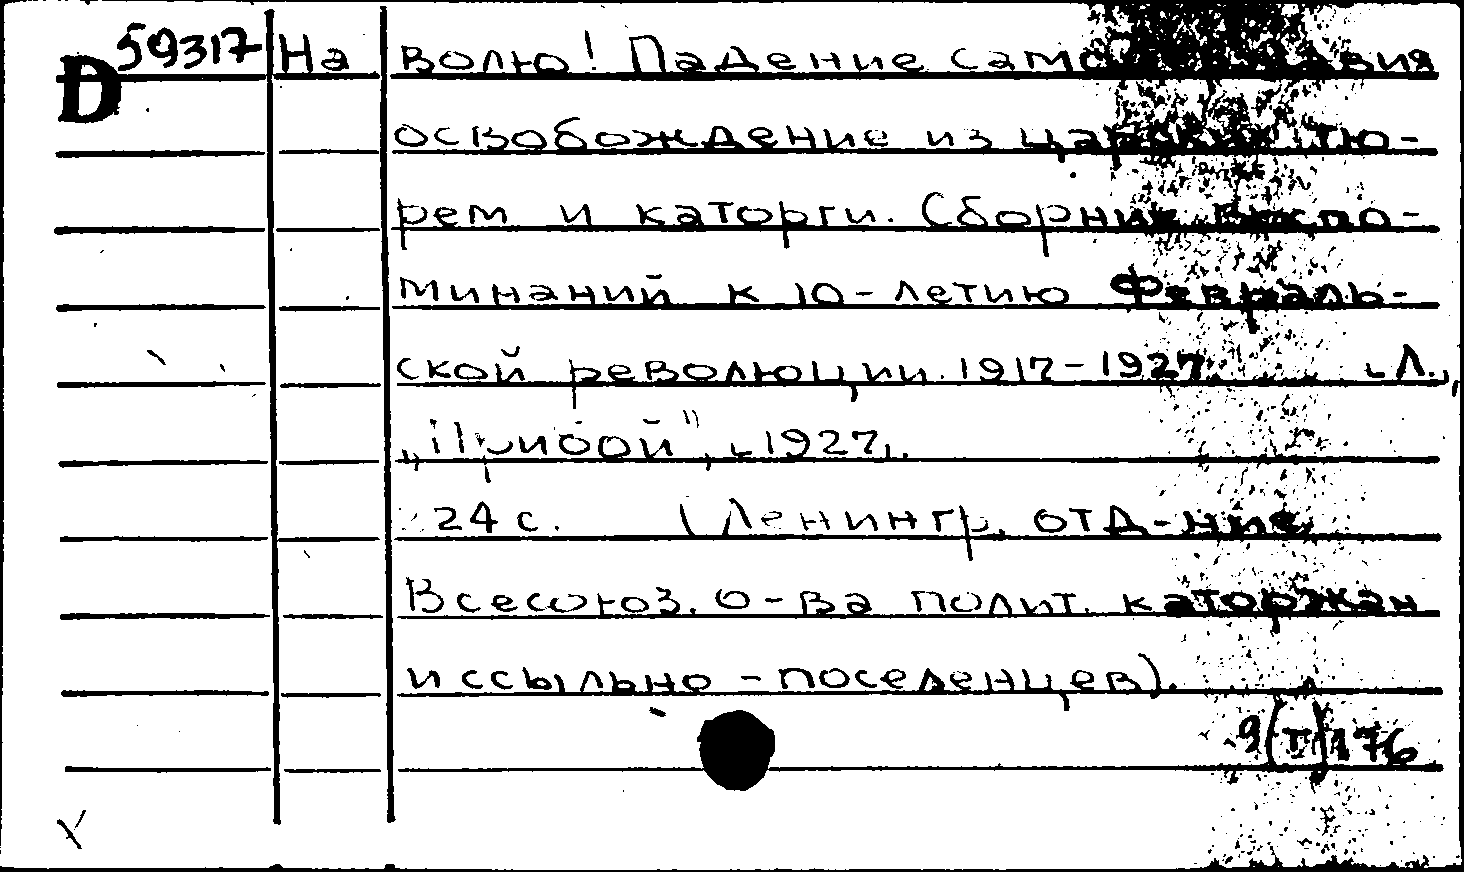 D 59317 На волю! Падение самодержавия
освобождение из царских тю-
рем и каторги. Сборник воспо-
минаний к 10-летию Февраль-
ской революции. 1917-1927. Л.,
„Прибой", 1927.
24 с. (Ленингр. отд-ние
Всесоюз. о-ва полит. каторжан
и ссыльно-поселенцев).
9(п)176